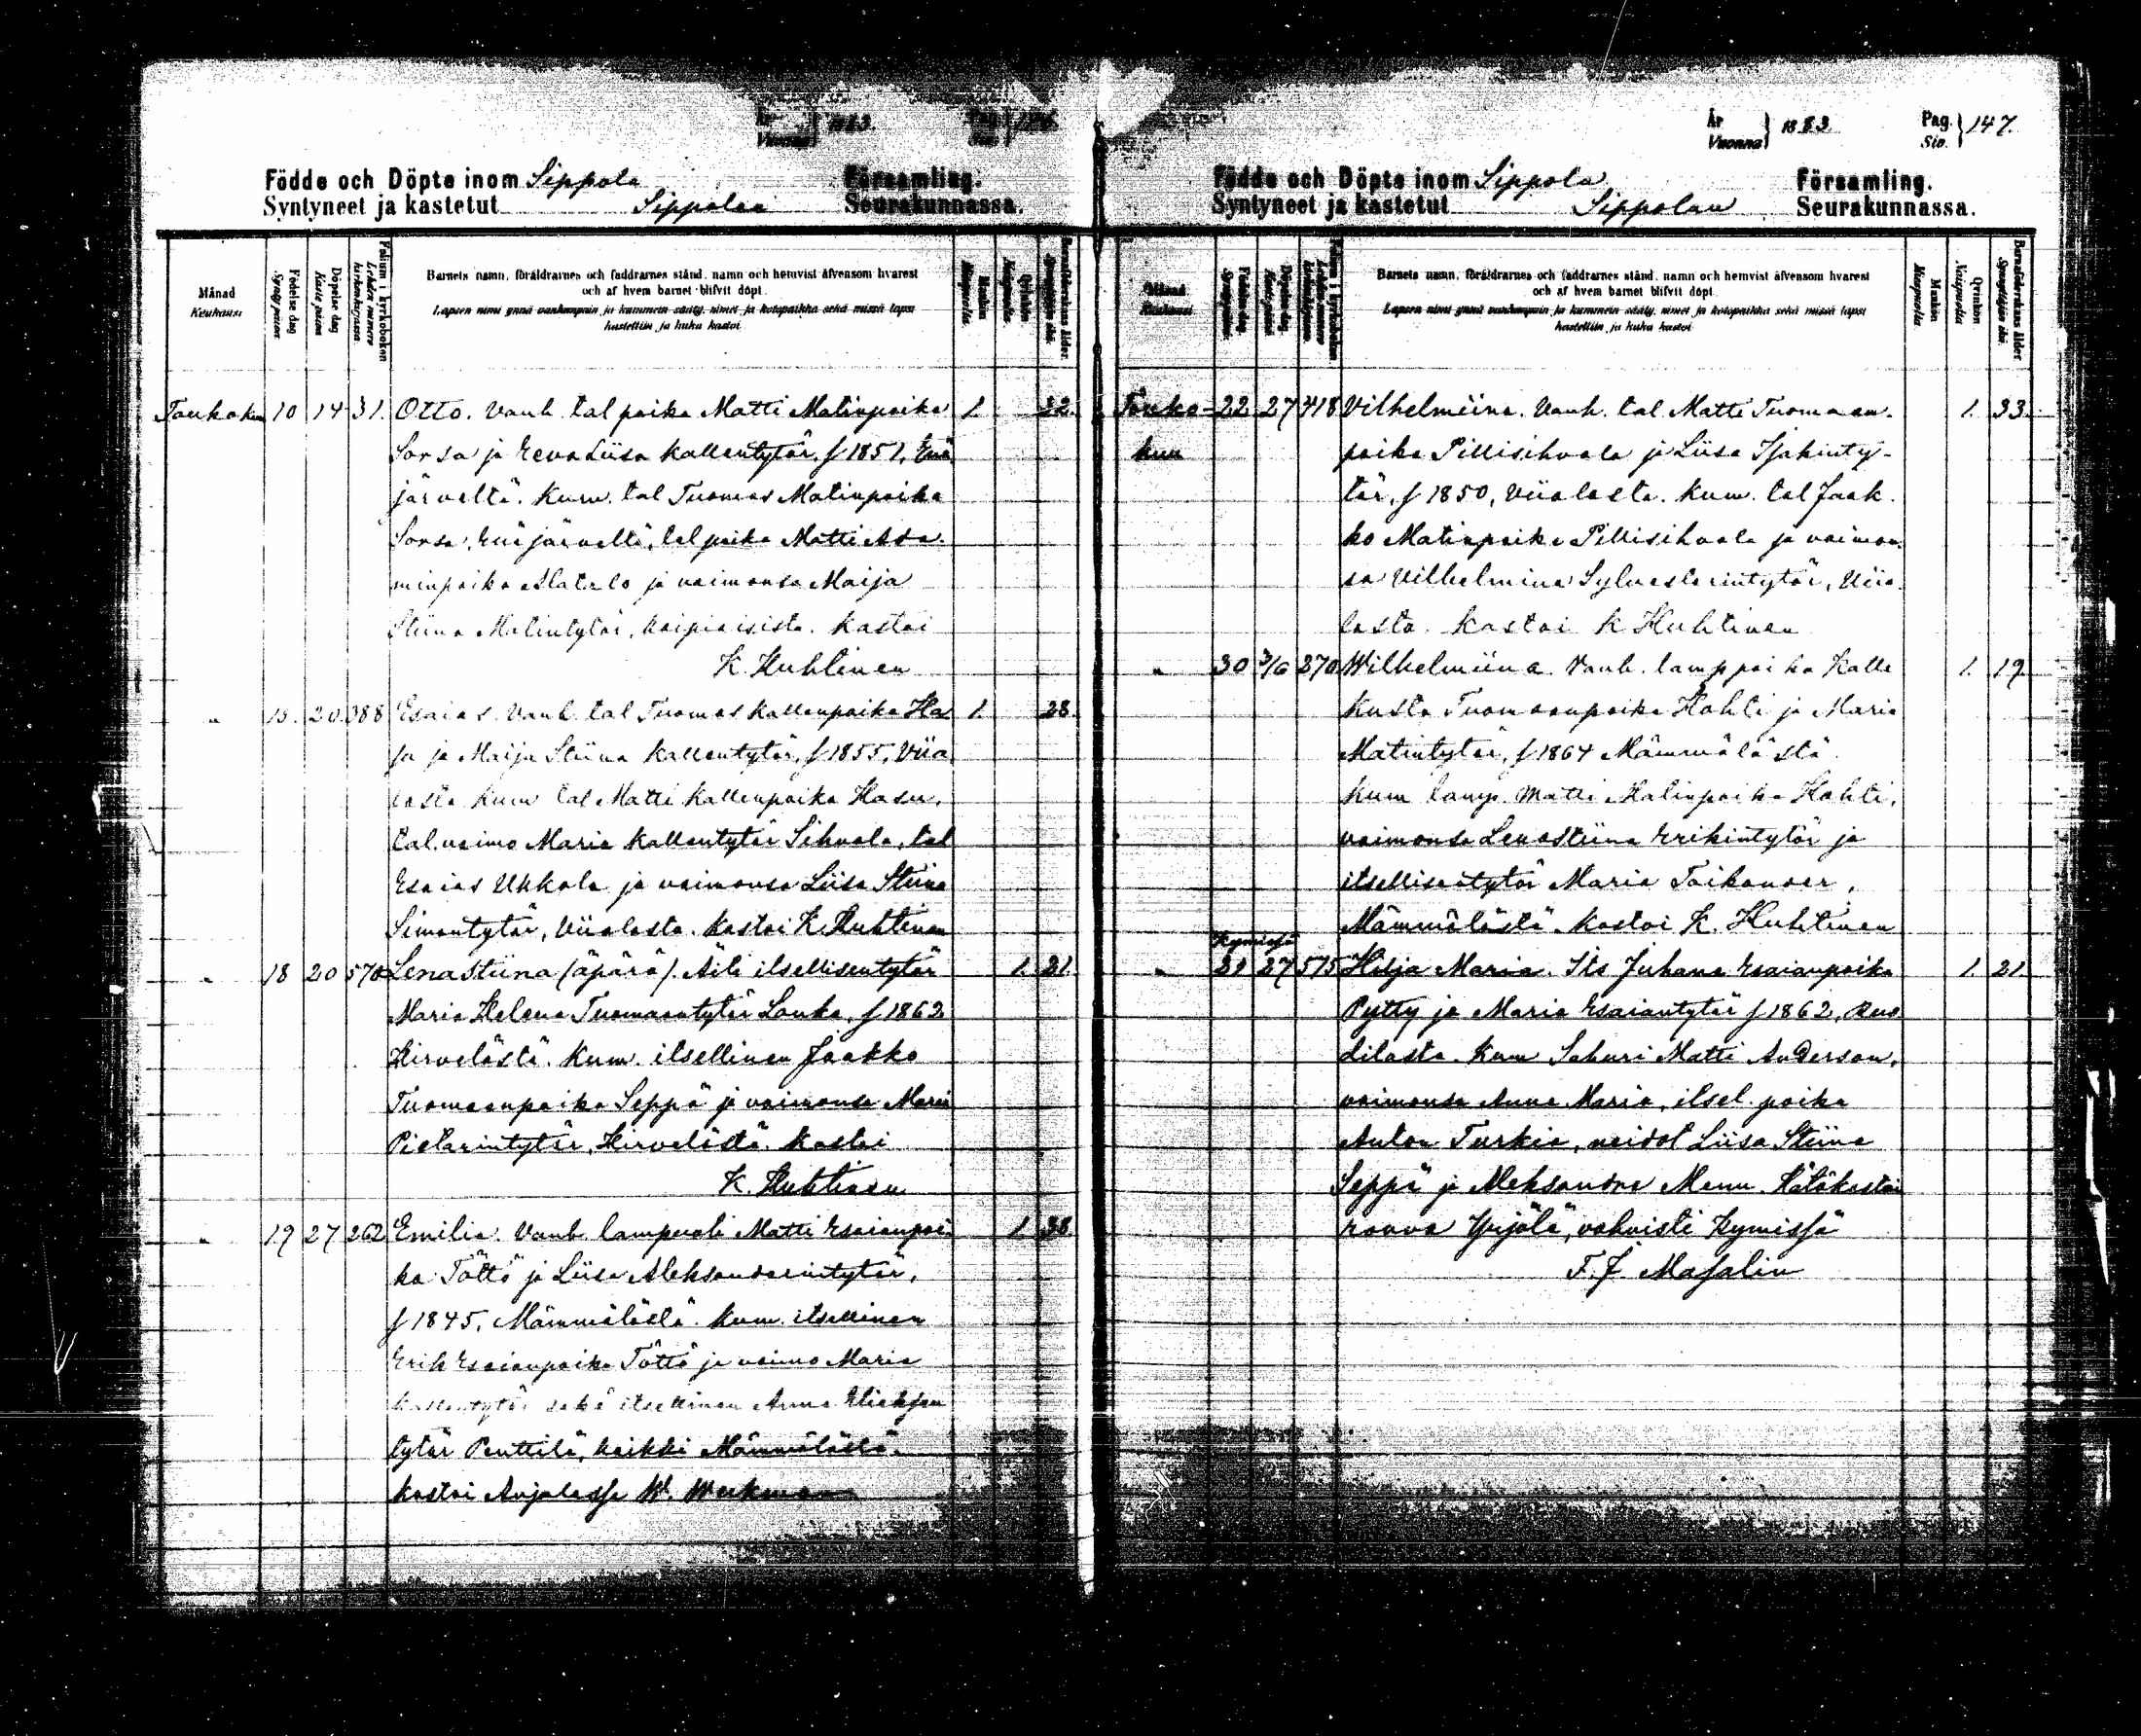 År Vuonna } 1883. Pag. Siv. } 146.
Födde och Döpte inom Sippola Församling.
Syntyneet ja kastetut Sippolan Seurakunnassa.
Månad Kuukausi
Födelse dag Syntypäivä
Döpelse dag Kaste päivä
Folium i kyrkoboken Lehden numero kirkonkirjassa
Barnets namn, föräldrarnes och faddrarnes stånd, namn och hemvist äfvensom hvarest
och af hvem barnet blifvit döpt.
Lapsen nimi ynnä vanhempain ja kummein sääty, nimet ja kotopaikka sekä missä lapsi
kastettiin ja kuka kastoi.
Mankön Miespuolta
Qvinkön Vaispuolta
Barnaföderskans ålder. Synnyttäjän ikä.
Toukokuu 10 14 31. Otto. Vanh. tal poika Matti Matinpoika 1. 32.
Sorsa ja Eeva Liisa Kallentytär, f 1851, Enä
järveltä. Kum. tal Tuomas Matinpoika
Sorsa, Enäjärveltä, tal poika Matti Ada-
minpoika Alatalo ja vaimonsa Maija
Stiina Matintytär, Kaipiaisista. Kastoi
K. Huhtinen
" 15. 20 388 Esaias. Vanh. tal Tuomas Kallenpoika Ha 1. 28.
su ja Maija Stiina Kallentytär, f 1855, Viia
lasta Kum tal Matti Kallenpoika Hasu,
tal. vaimo Maria Kallentytär Sihvola, tal
Esaias Ukkola ja vaimonsa Liisa Stiina
Simontytär, Viialasta. Kastoi K. Huhtinen
" 18 20 570 Lenastiina (äpärä). Äiti itsellisentytär 1. 21.
Maria Helena Tuomaantytär Lanka, f 1862
Hirvelästä. Kum. itsellinen Jaakko
Tuomaanpoika Seppä ja vaimonsa Maria
Pietarintytär, Hirvelästä. Kastoi
K. Huhtinen
" 19 27 262 Emilia. Vanh. lampuoti Matti Esaianpoi- 1. 38.
ka Töttö ja Liisa Aleksanderintytär,
f 1845, Mämmälästä. Kum. itsellinen
Erik Esaianpoika Töttö ja vaimo Maria
Kallentytär sekä itsellinen Anna
tytär Penttilä, kaikki Mämmälästä.
Kastoi Anjalassa W. Weckman
År Vuonna } 1883 Pag. Siv. } 147.
Födde och Döpte inom Sippola Församling.
Syntyneet ja kastetut Sippolan Seurakunnassa.
Månad Kuukausi
Födelse dag Syntypäivä
Döpelse dag Kastepäivä
Folium i kyrkoboken Lehden numero kirkonkirjassa
Barnets namn, föräldrarnes och faddrarnes stånd, namn och hemvist äfvensom hvarest
och af hvem barnet blifvit döpt.
Lapsen nimi ynnä vanhempain ja kummein sääty, nimet ja kotopaikka sekä missä lapsi
kastettiin ja kuka kastoi.
Mankön Miespuolta
Qvinkön Vaispuolta
Barnaföderskans ålder Synnyttäjän ikä.
Touko- 22 27 418 Vilhelmiina. Vanh. tal. Matti Tuomaan- 1. 33.
kuu poika Pillisihvola ja Liisa Isakinty-
tär, f 1850, Viialasta. Kum. tal Jaak-
ko Matinpoika Pillisihvola ja vaimon-
sa Vilhelmina Sylvesterintytär, Viia-
lasta. Kastoi K Huhtinen
" 30 3/6 270 Wilhelmiina. Vanh. lamp poika Kalle 1. 19.
Kusta Tuomaanpoika Hohti ja Maria
Matintytär, f 1864 Mämmälästä.
Kum lamp. Matti Matinpoika Hohti,
vaimonsa Lenastiina Erikintytär ja
itsellisentytär Maria Toikander,
Mämmälästä. Kastoi K. Huhtinen
Kymissä
" 21 27 575 Hilja Maria. Its Juhana Esaianpoika 1 21.
Pytty ja Maria Esaiantytär f 1862, Ruo
tilasta. Kum Sahuri Matti Anderson,
vaimonsa Anna Maria, itsel. poika
Anton Turkia, neidot Liisa Stiina
Seppä ja Aleksandra Mennu. Hätäkastoi
rouva Yrjölä, vahvisti Kymissä
F. J. Masalin